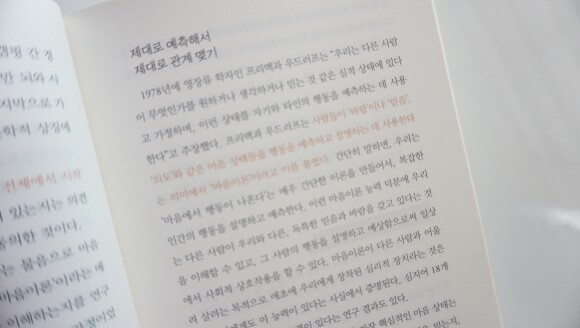 제대로 예측해서
제대로 관계 맺기
1978년에 영장류 학자인 프리맥과 우드러프는 "우리는 다른 사람
이 무엇인가를 원하거나 생각하거나 믿는 것 같은 심적 상태에 있다
고 가정하며, 이런 상태를 자기와 타인의 행동을 예측하는 데 사용
한다"고 주장했다. 프리맥과 우드러프는 사람들이 '바람'이나 '믿음',
'의도'와 같은 마음 상태들을 행동을 예측하고 설명하는 데 사용한다
는 의미에서 '마음이론'이라고 이름 붙였다. 간단히 말하면, 우리는
'마음에서 행동이 나온다'는 매우 간단한 이론을 만들어서, 복잡한
인간의 행동을 설명하고 예측한다. 이런 마음이론 능력 덕분에 우리
는 다른 사람이 우리와 다른, 독특한 믿음과 바람을 갖고 있다는 것
을 이해할 수 있고, 그 사람의 행동을 설명하고 예상함으로써 일상
에서 사회적 상호작용을 할 수 있다. 마음이론이 다른 사람과 어울
려 살려는 목적으로 애초에 우리에게 장착된 심리적 장치라는 것은
이 능력이 있다는 사실에서 증명된다. 심지어 18개
이 능력이 있다는 연구 결과도 있다.
핵심적인 마음 상태는
간 정
만 뇌와 사
지막으로 가
학적 상징에
전제에서 시작
있는지는 의견
동의한 것이다.
는 믿음으로 마음
마음이론'이라는 메
이해하는지를 연구